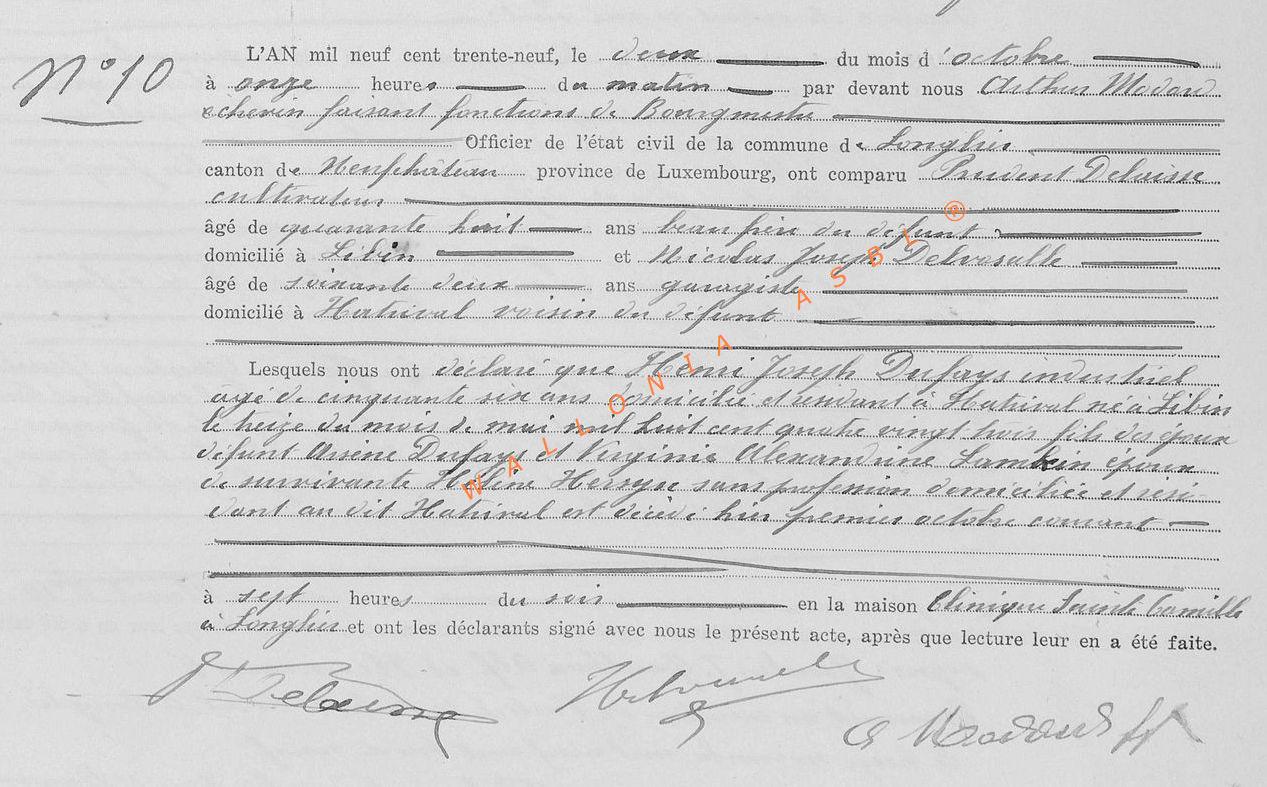 N° 10
L'AN mil neuf cent trente-neuf, le deux du mois d'octobre
à onze heures du matin par devant nous Arthur Modard
echevin faisant fonctions de Bourgmestre
Officier de l'état civil de la commune de Longlier
canton de Neufchâteau province de Luxembourg, ont comparu Prudent Delaisse
cultivateur
âgé de quarante huit ans beau frère du défunt
domicilié à Libin et Nicolas Joseph
âgé de soixante deux ans garagiste
domicilié à Hatrival voisin du défunt
Lesquels nous ont déclaré que Henri Joseph Dufays industriel
agé de cinquante six ans domicilié et résidant à Hatrival né à Libin
le treize du mois de mai mil huit cent quatre vingt trois fils des époux
défunt Arsène Dufays et Virginie Alexandrine Lambin époux
de survivante Hélène sans profession domiciliée et rési-
dant au dit Hatrival est décédé hier premier octobre courant
à sept heures du soir en la maison Clinique Sainte Camille
à Longlier et ont les déclarants signé avec nous le présent acte, après que lecture leur en a été faite.
WALLONIA ASBL ®